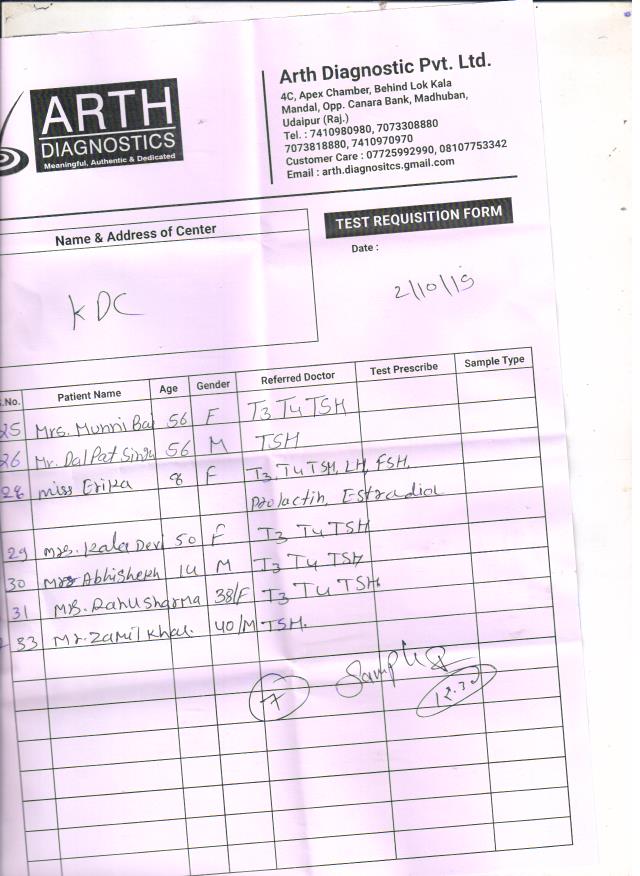 ARTH
DIAGNOSTICS
Meaningful, Authentic & Dedicated
Arth Diagnostic Pvt. Ltd.
4C, Apex Chamber, Behind Lok Kala
Mandal, Opp. Canara Bank, Madhuban,
Udaipur (Raj.)
Tel. : 7410980980, 7073308880
7073818880, 7410970970
Customer Care : 07725992990, 08107753342
Email : arth.diagnositcs.gmail.com
Name & Address of Center
TEST REQUISITION FORM
Date :
KDC
2/10/19
.No. Patient Name Age Gender Referred Doctor Test Prescribe Sample Type
25 Mrs. Munni Bai 56 F T3 T4 TSH
26 Mr. DalPat Singh 56 M TSH
28 miss Erika 8 F T3, T4 TSH, LH, FSH,
Prolactin, Estradiol
29 mrs. Kala Devi 50 F T3 T4 TSH
30 Abhishekh 14 M T3 T4 TSH
31 Sharma 38/F T3 T4 TSH
33 Mr. Zamil Khan. 40/M TSH.
7
12.30